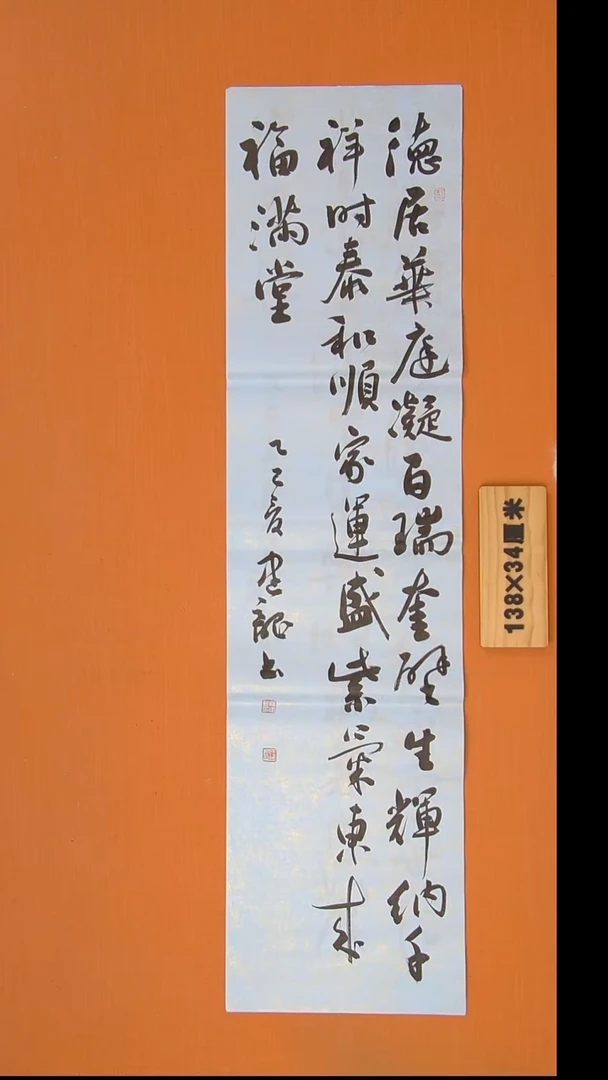 德居華庭凝百瑞奎壁生輝納千
祥时泰和順家運盛紫氣東來
福满堂
乙巳夏建龍书
138×34厘米